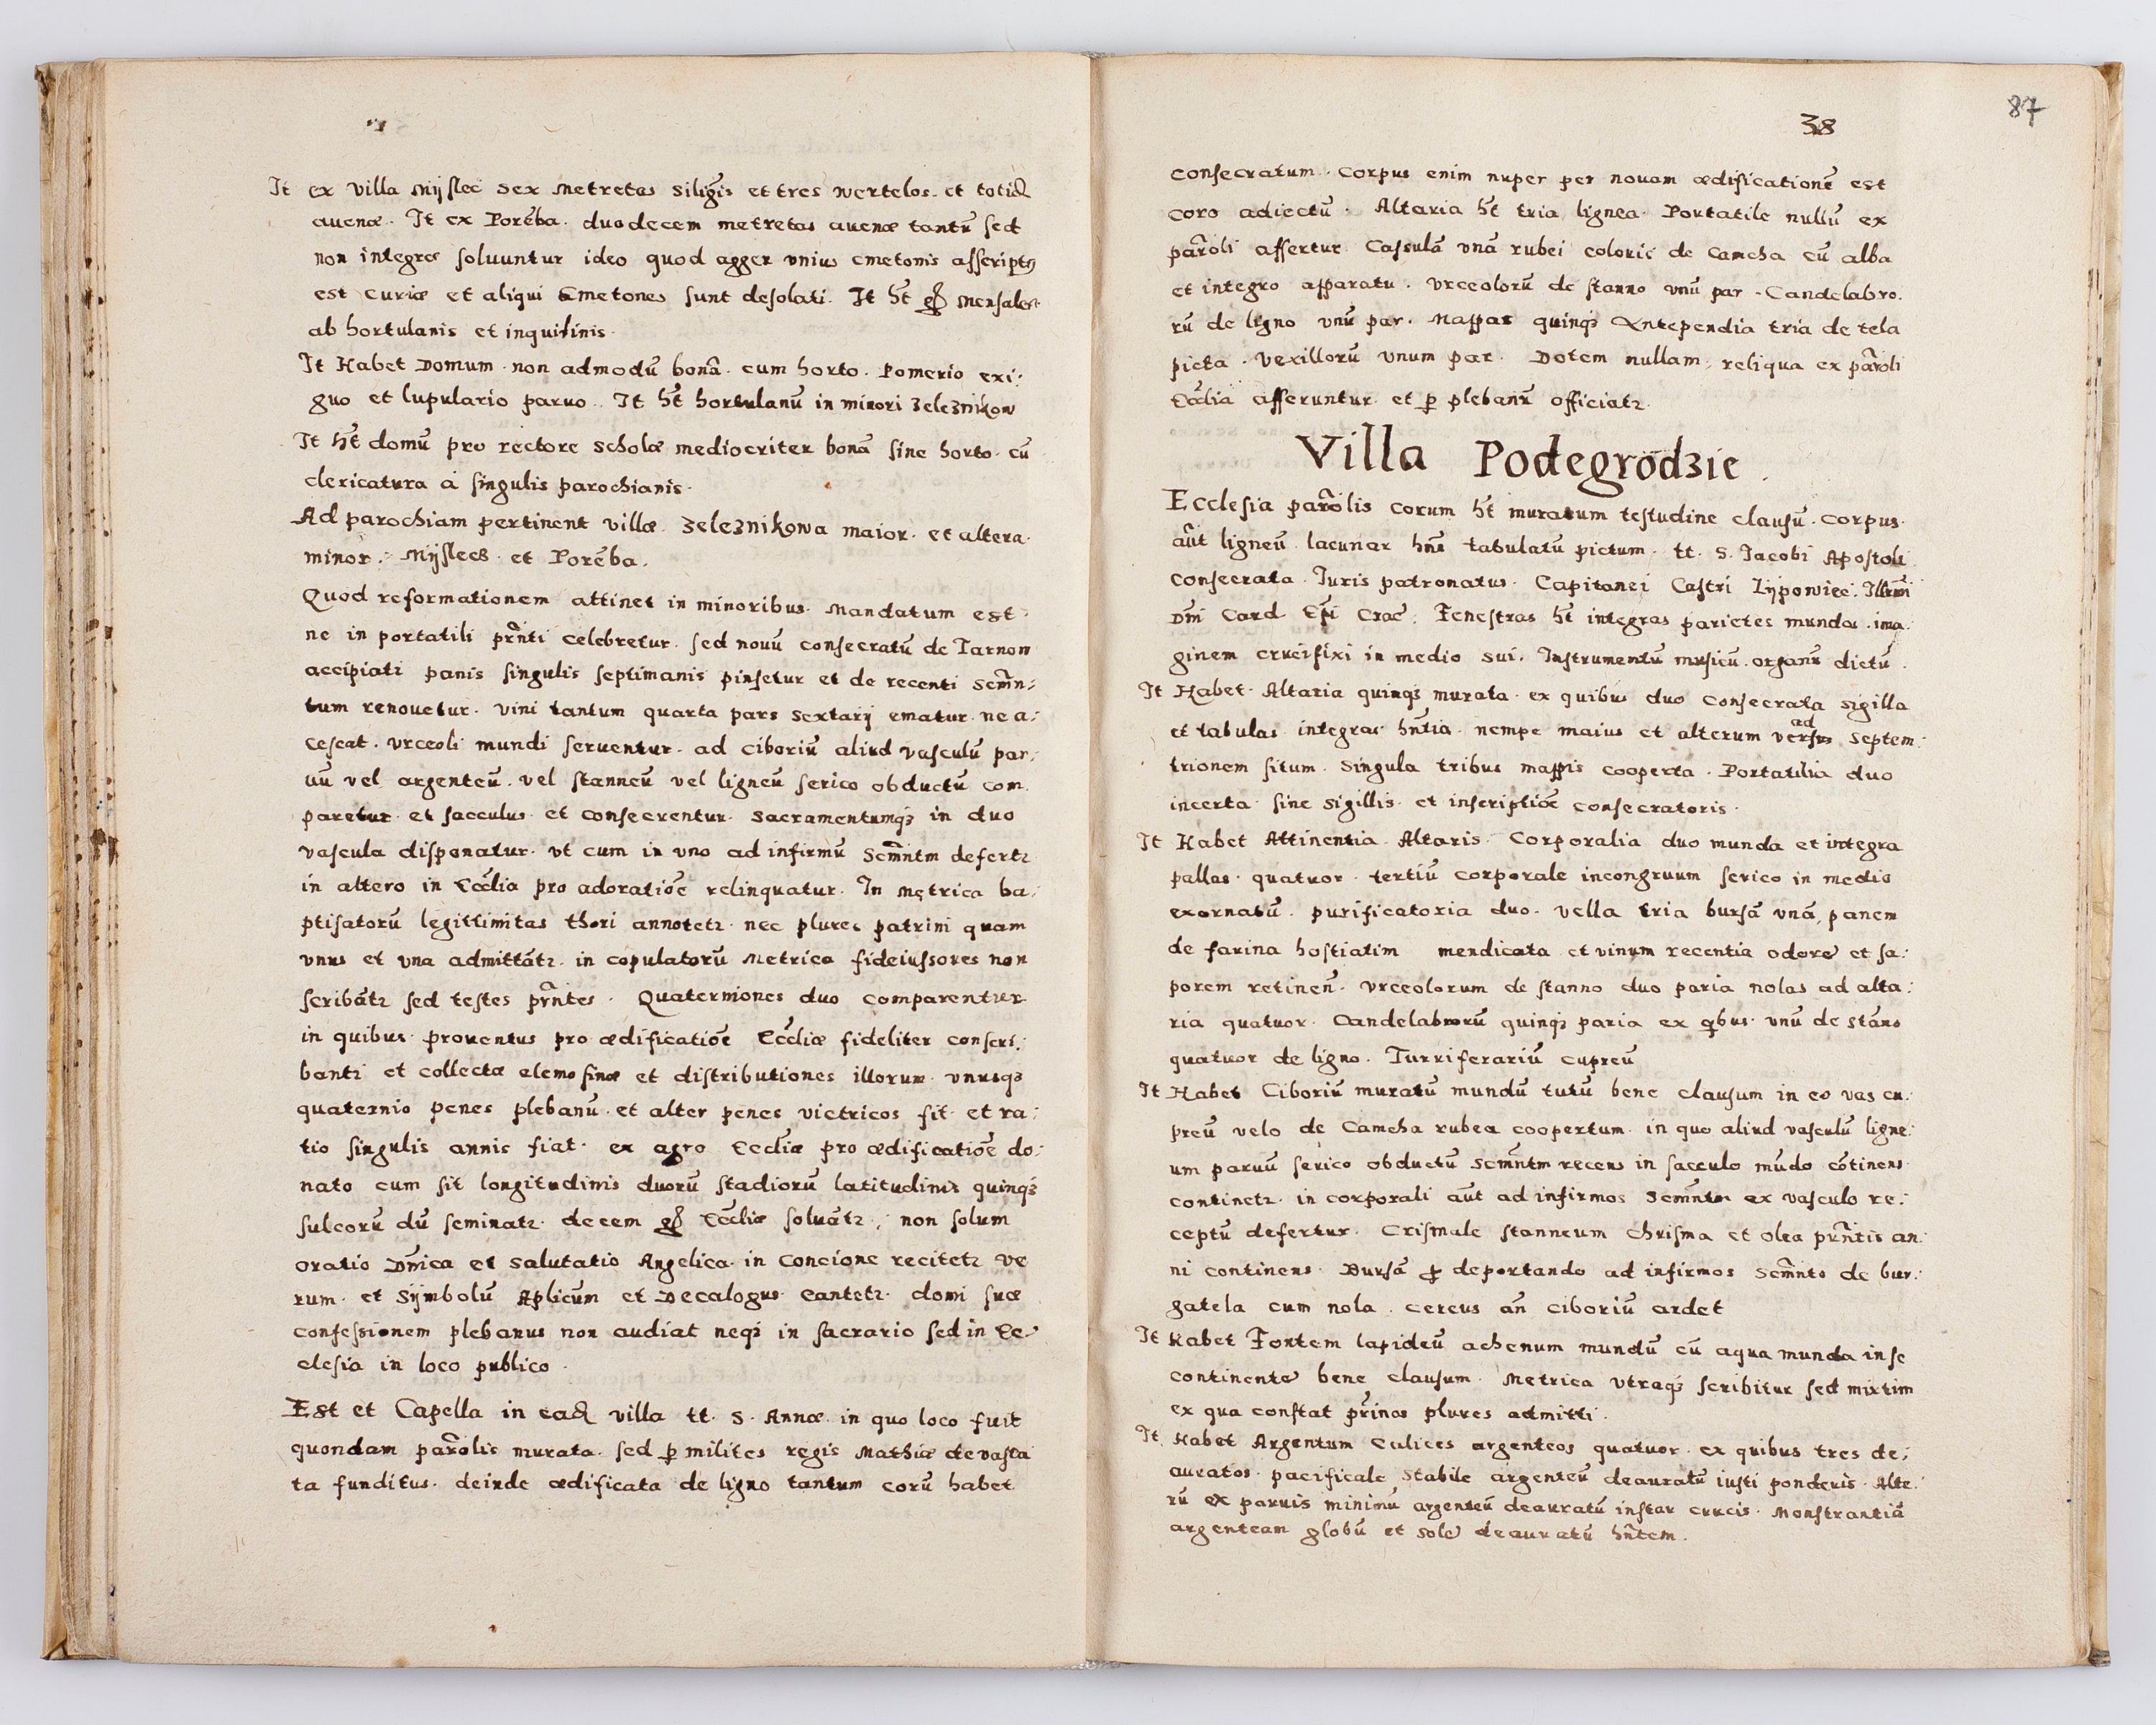 It ex villa Mÿslec sex Metretas Siligīs et tres wertelos et totid
auenæ. It ex Porēba. duodecem metretas auenæ tantū sed
non integræ soluuntur ideo quod agger vnius cmetonis asscript9
est curiæ et aliqui Cmetones sunt desolati. It ht̄ Mensales
ab hortulanis et inquilinis.
It Habet Domum non admodū bonā cum horto. Pomerio exi:
guo et lupulario paruo. It ht̄ hortulanū in minori Zeleznikow
It ht̄ domū pro rectore scholæ mediocriter bonā sine horto. cū
clericatura á singulis parochianis.
Ad parochiam pertinent villæ Zeleznikowa maior. et altera
minor. Mÿslecz et Porēba.
Quod reformationem attinet in minoribus. Mandatum est
ne in portatili prn̄ti celebretur. sed nouū consecratū de Tarnow
accipiatꝛ panis singulis septimanis pinsetur et de recenti Scm̄n:
tum renouetur. vini tantum quarta pars sextarij ematur. ne a:
cescat. vrceoli mundi seruentur. ad ciboriū aliud vasculū par:
uū vel argenteū. vel stanneū vel ligneū serico obductū com.
paretur et sacculus et consecrentur. Sacramentumqꝫ in duo
vascula disponatur. vt cum in vno ad infirmū Scm̄ntm defertꝛ
in altero in Eccl̄ia pro adoratiōe relinquatur. In Metrica ba:
ptisatorū legittimitas thori annotetꝛ nec plures patrini quam
vnus et vna admittātꝛ. in copulatorū Metrica fideiussores non
scribātꝛ sed testes prn̄tes. Quaterniones duo comparentur
in quibus prouentus pro ædificatiōe Eccl̄iæ fideliter conscri:
bantꝛ et collectæ elemosinæ et distributiones illorum vnusqꝫ
quaternio penes plebanū et alter penes victricos sit et ra:
tio singulis annis fiat. ex agro Eccliæ pro ædificatiōe do:
nato cum sit longitudinis duorū stadiorū latitudinis quinqꝫ
sulcorū dū seminatꝛ decem Eccl̄iæ soluātꝛ, non solum
oratio Dn̄ica et salutatio Angelica in concione recitetꝛ ve
rum et Sÿmbolū Aplicūm et Decalogus cantetꝛ domi suæ
confessionem plebanus non audiat neqꝫ in sacrario sed in Ec:
clesia in loco publico.
Est et Capella in ead villa tt. S. Annæ in quo loco fuit
quondam parōlis murata. sed ꝑ milites regis Mathiæ devasta
ta funditus. deinde ædificata de ligno tantum corū habet
38
87
consecratum. Corpus enim nuper per nouam ædificationē est
coro adiectū. Altaria ht̄ tria lignea. Portatile nullū ex
parōli affertur. Casulā vnā rubei coloris de camcha cū alba
et integro apparatu. vrceolorū de stanno vnū par. Candelabro.
rū de ligno vnū par. Mappas quinqꝫ Antependia tria de tela
picta. Vexillorū vnum par. Dotem nullam, reliqua ex parōli
Eccl̄ia afferuntur et ꝑ plebanū officiatꝛ.
Villa Podegrodzie.
Ecclesia parōlis corum ht̄ muratum testudine clausū. Corpus
aūt ligneū. lacunar hn̄s tabulatū pictum. tt. S. Jacobi Apostoli
consecrata. Juris patronatus. Capitanei Castri Lÿpowiec. Illrmi
Dn̄i Card Ep̄i Crac. Fenestras ht̄ integras parietes mundos ima
ginem crucifixi in medio sui. Instrumentū musicū organū dictū.
It Habet. Altaria quinqꝫ murata ex quibus duo consecrata sigilla
et tabulas integras hn̄tia nempe maius et alterum ad versus septem:
trionem situm. Singula tribus mappis cooperta. Portatilia duo
incerta sine sigillis et inscriptiōe consecratoris.
It Habet Attinentia Altaris Corporalia duo munda et integra
pallas quatuor tertiū corporale incongruum serico in medio
exornatū. purificatoria duo. vella tria bursā vnā, panem
de farina hostiatim mendicata et vinum recentia odore et sa:
porem retinen̄. vrceolorum de stanno duo paria nolas ad alta:
ria quatuor. Candelabrorū quinqꝫ paria ex qbus vnū de stāno
quatuor de ligno. Turriferariū cupreū
It Habet Ciboriū muratū mundū tutū bene clausum in eo vas cu:
preū velo de Camcha rubea coopertum in quo aliud vasculū ligne:
um paruū serico obductū Scm̄ntm recens in sacculo mūdo cōtinens
continetꝛ in corporali aūt ad infirmos Scm̄ntm ex vasculo re:
ceptū defertur. Crismale stanneum chrisma et olea prn̄tis an:
ni continens. Bursā ꝓ deportando ad infirmos Scm̄nto de bur:
gatela cum nola. cereus an̄ ciboriū ardet
It Habet Fontem lapideū achenum mundū cū aqua munda in se
continente bene clausum. Metrica vtraqꝫ scribitur sed mixtim
ex qua constat pr̄inos plures admitti.
It Habet Argentum Calices argenteos quatuor ex quibus tres de:
auratos. pacificale stabile argenteū deauratū iusti ponderis. Alte:
rū ex paruis minimū argenteū deauratū instar crucis. Monstrantiā
argenteam globū et sole deauratū hn̄tem.